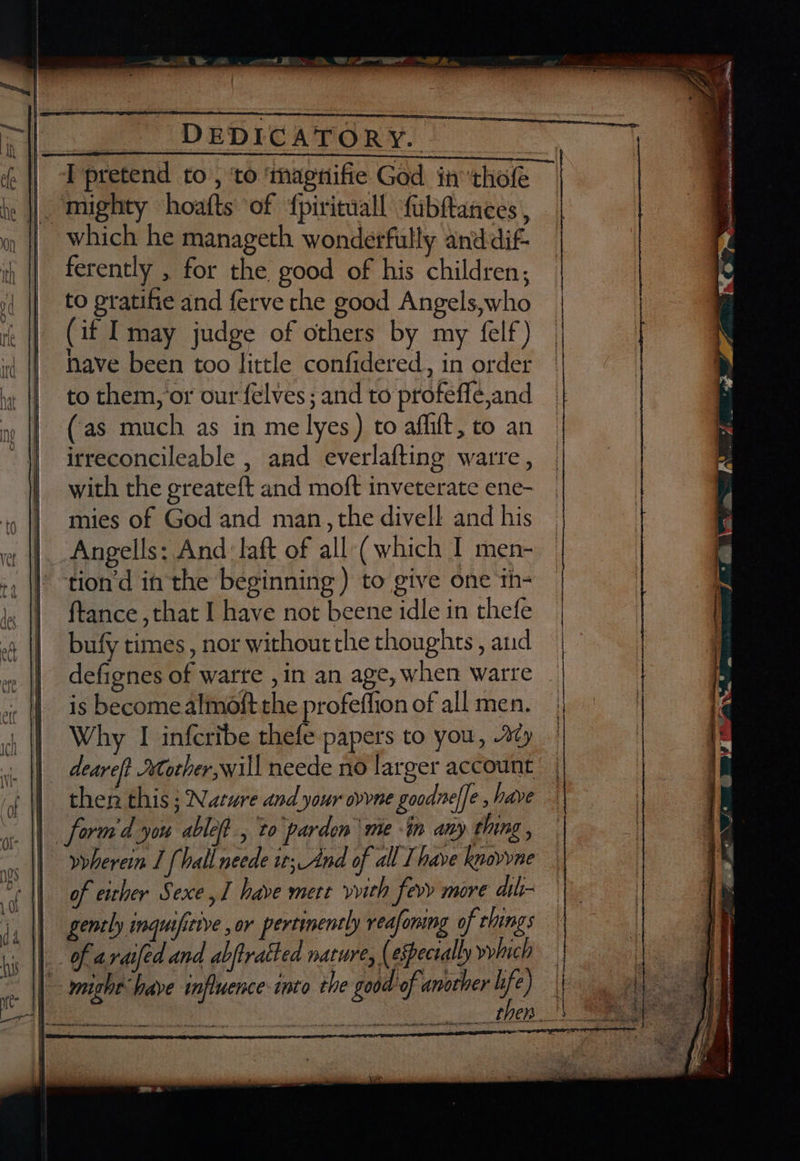 DEDICATORY.
I pretend to, to magnifie God in thoſe
mighty hoaſts of ſpirituall ſubſtances,
which he manageth wonderfully and dif-
ferently, for the good of his children;
to gratifie and ſerve the good Angels, who
(if I may judge of others by my ſelf)
have been too little conſidered, in order
to them, or our ſelves; and to profeſſe, and
(as much as in me lyes) to aſſiſt, to an
irreconcileable, and everlaſting warre,
with the greateſt and moſt inveterate ene-
mies of God and man, the divell and his
Angells: And laſt of all (which I men-
tion'd in the beginning) to give one in-
ſtance, that I have not beene idle in theſe
buſy times, nor without the thoughts, and
deſignes of warre, in an age, when warre
is become almoſt the profeſſion of all men.
Why I inſcribe theſe papers to you, My
deareſt Mother, will neede no larger account
then this; Nature and your ovvne goodneſſe, have
form'd you ableſt, to pardon me in any thing,
vvherein I ſhall neede it; And of all I have knovvne
of either Sexe, I have mett vvith fevv more dili-
gently inquiſitive, or pertinently reaſoning of things
of a raiſed and abſtracted nature, (eſpecially vvhich
might have influence into the good of another life)
then